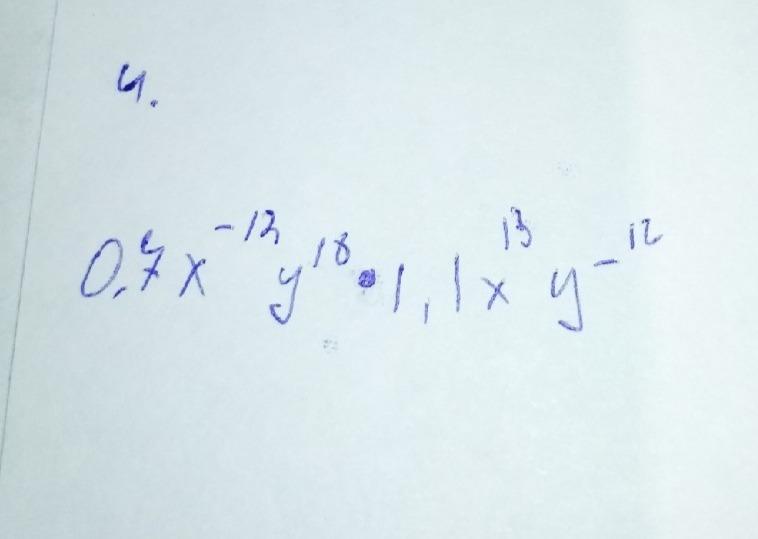 4.
0,7x⁻¹²y¹⁸•1,1x¹³y⁻¹²